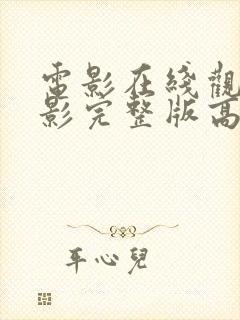 電影在綫觀
影完整版高
平心兒